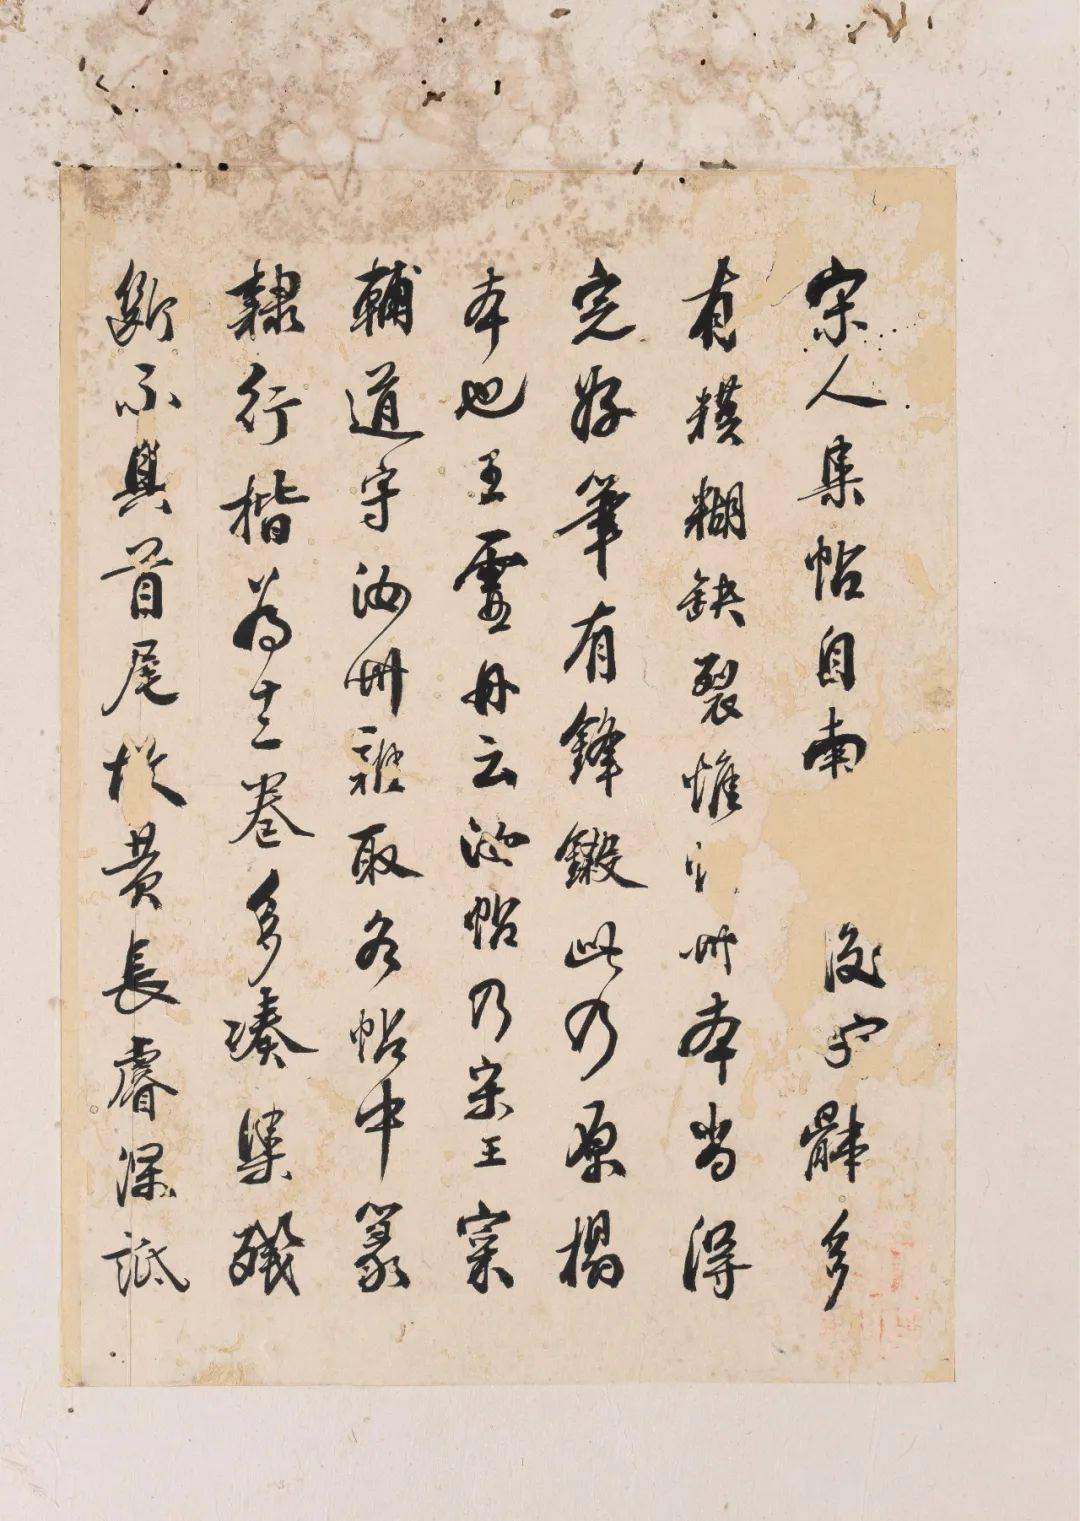 宋人集帖自南後字體多
有模糊缺裂惟州本當得
完好筆有鋒鍛此乃原榻
本也王虛舟云汝帖乃宋王寀
輔道守汝州雜取各帖中篆
隸行楷為十二卷多湊集殘
斷不具首尾故黄長睿深詆